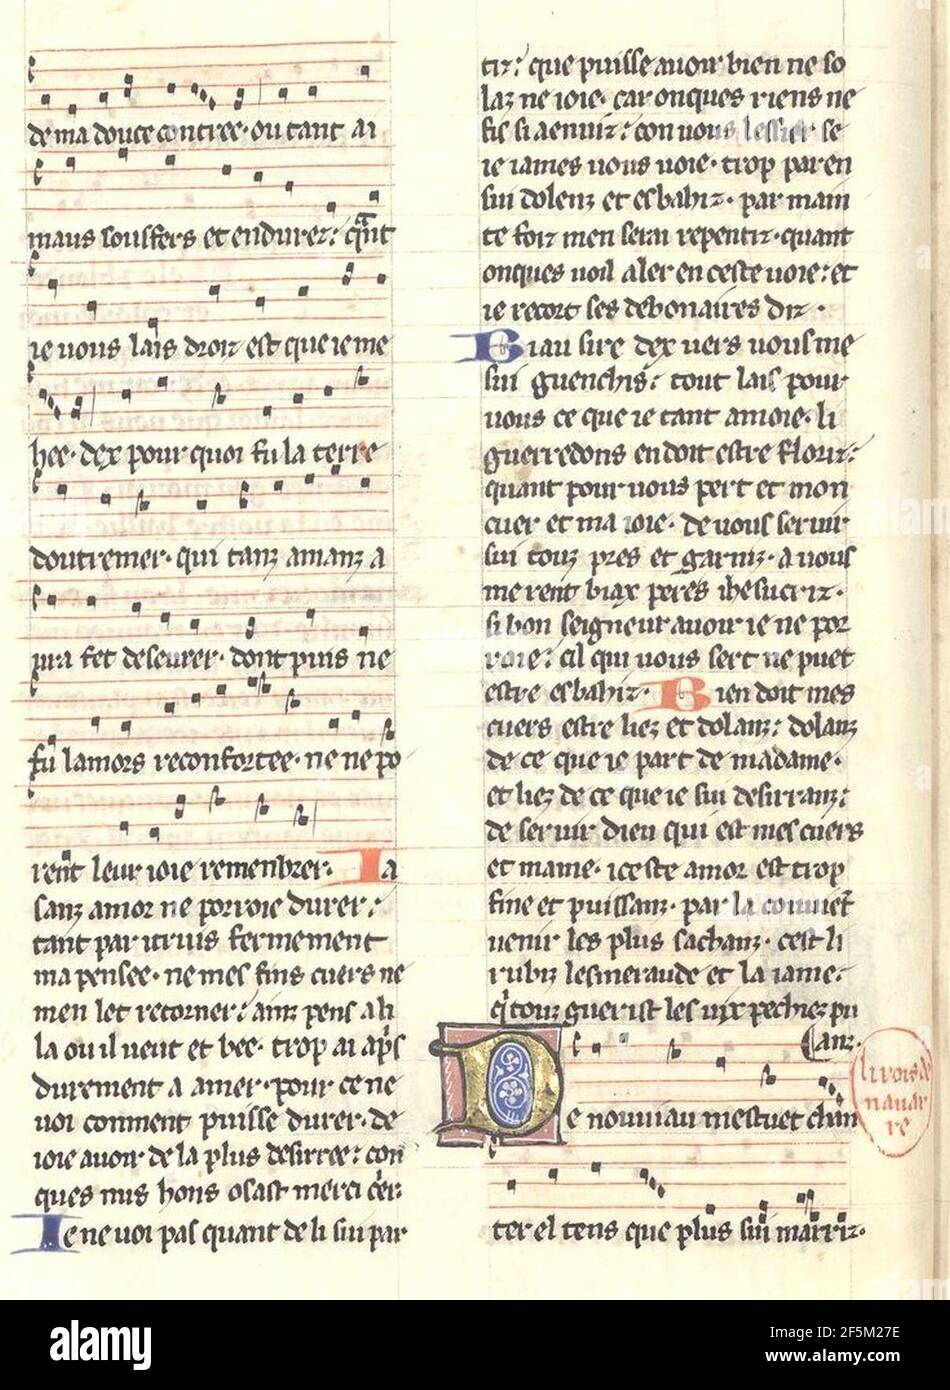 de ma douce contree· ou tant ai
maus sousfers et endurez: qͣnt
ie vous lais droiz est que ie me
hee· dex pour quoi fu la terre
doutremer· qui tanz amanz a
pura fet deseurer· dont puis ne
fu lamors reconfortee· ne ne po
rent leur ioie remenbrer· Ia
sanz amor ne porroie durer:
tant par truis fermement
ma pensee· ne mes fins cuers ne
men let retorner: ainz pens a li
la ou il veut et bee· trop ai apͥs
durement a amer· pour ce ne
voi conment puisse durer· de
ioie auoir de la plus desirree: con
ques nus hons osast merci crͥer:
Ie ne voi pas quant de li sui par
tiz: que puisse auoir bien ne so
laz ne ioie· car onques riens ne
fis si a enuiz: con vous lessier se
ie iames vous voie· trop par en
sui dolenz et esbahiz· par main
te foiz men serai repentiz· quant
onques voil aler en ceste voie: et
ie recort ses debonaires diz·
Biau sire dex vers vous me
sui guenchis: tout lais pour
vous ce que ie tant amoie· li
guerredons en doit estre floriz:
quant pour vous pert et mon
cuer et ma ioie· de vous seruir
sui touz pres et garniz· a vous
me rent biax peres ihesucriz·
si bon seigneur auoir ie ne por
roie: cil qui vous sert ne puet
estre esbahiz· Bien doit mes
cuers estre liez et dolanz: dolanz
de ce que ie part de ma dame·
et liez de ce que ie sui desirranz:
de seruir dieu qui est mes cuers
et mame· iceste amor est trop
fine et puissanz· par la couuet
uenir les plus sachanz· cest li
rubiz lesmeraude et la iame:
qͥ touz guerist les vix pechiez pu
anz·
De nouuiau mestuet chan
ter el tens que plus sui marriz·
li rois de
nauar
re
alamy
Image ID: 2F5M27E
www.alamy.com